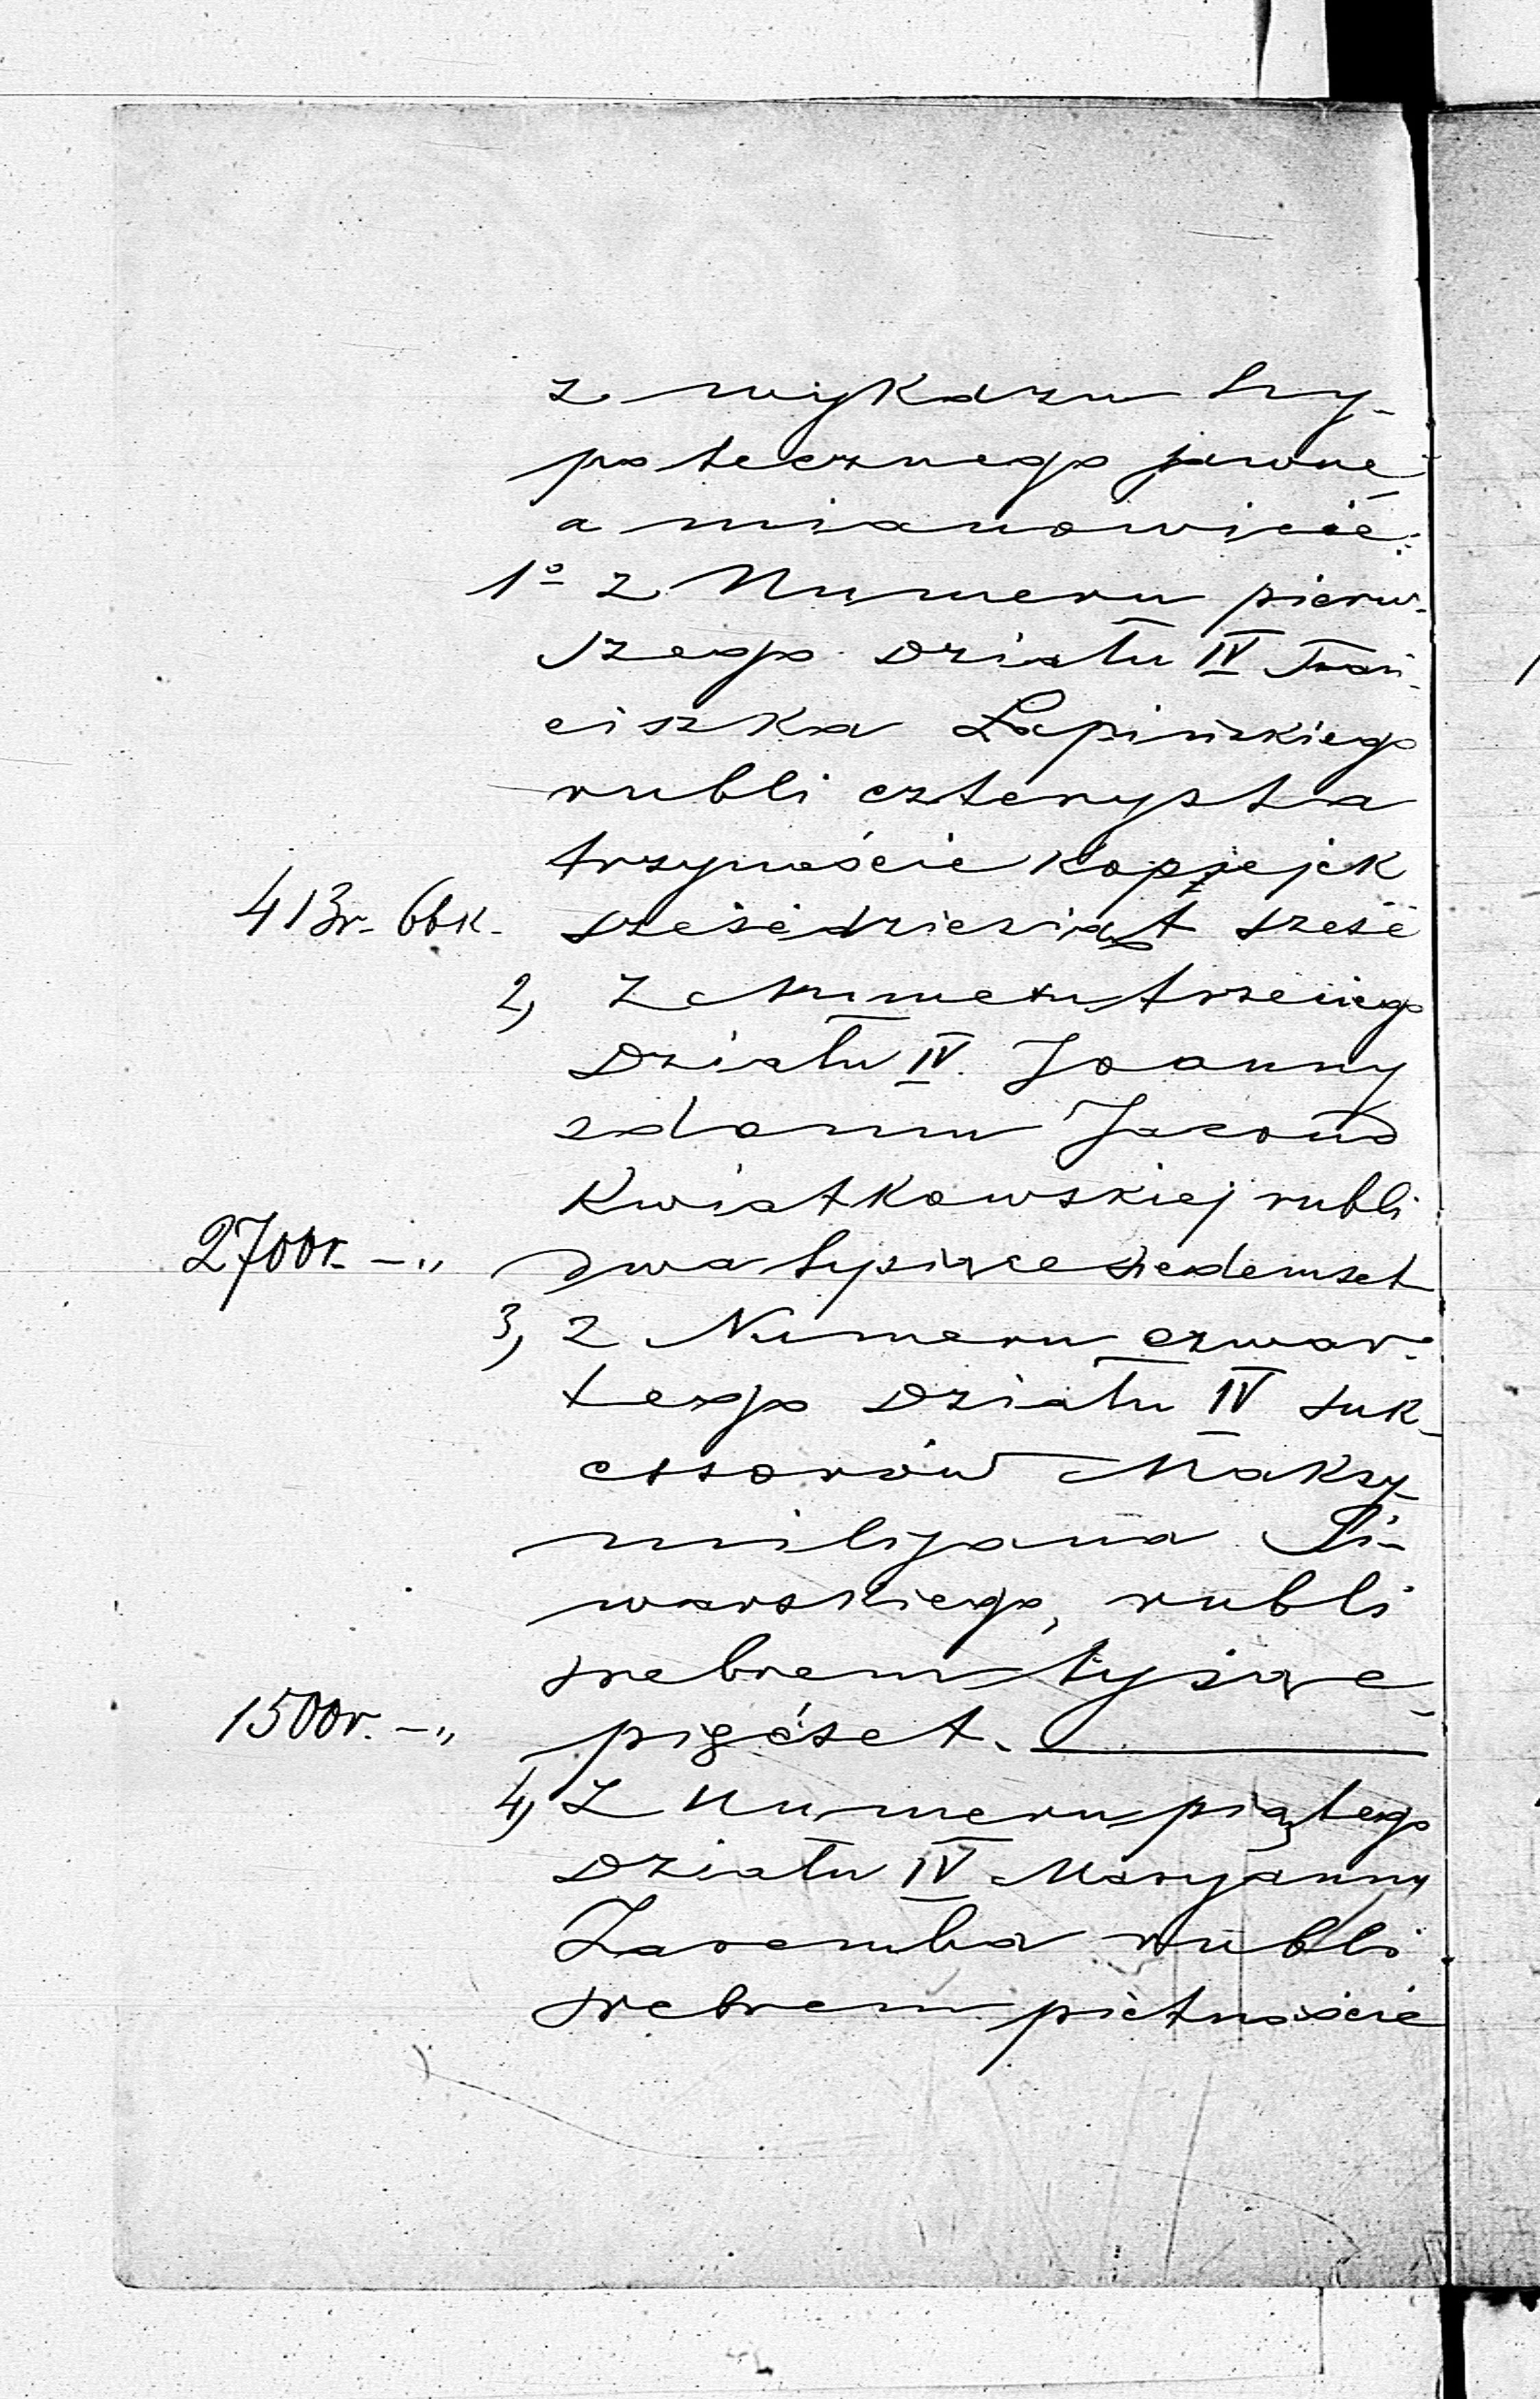 z wykazu hy-
potecznego jawne,
a mianowicie:
1º z Numeru pierw-
szego Działu IV Fran-
ciszka Łapińskiego
rubli czterysta
trzynaście kopiejek
413r. 66k. sześćdziesiąt sześć
2) Z Numeru trzeciego
Działu IV. Joanny
z domu
Kwiatkowskiej rubli
2700r. -„ dwa tysiące siedemset
3) z Numeru czwar-
tego Działu IV suk-
cessorów Maksy-
milijana Pi-
warskiego, rubli
srebrem tysiąc
1500r. -„ pięćset.
4) Z Numeru piątego
Działu IV Maryanny
Zaremba rubli
srebrem piętnaście